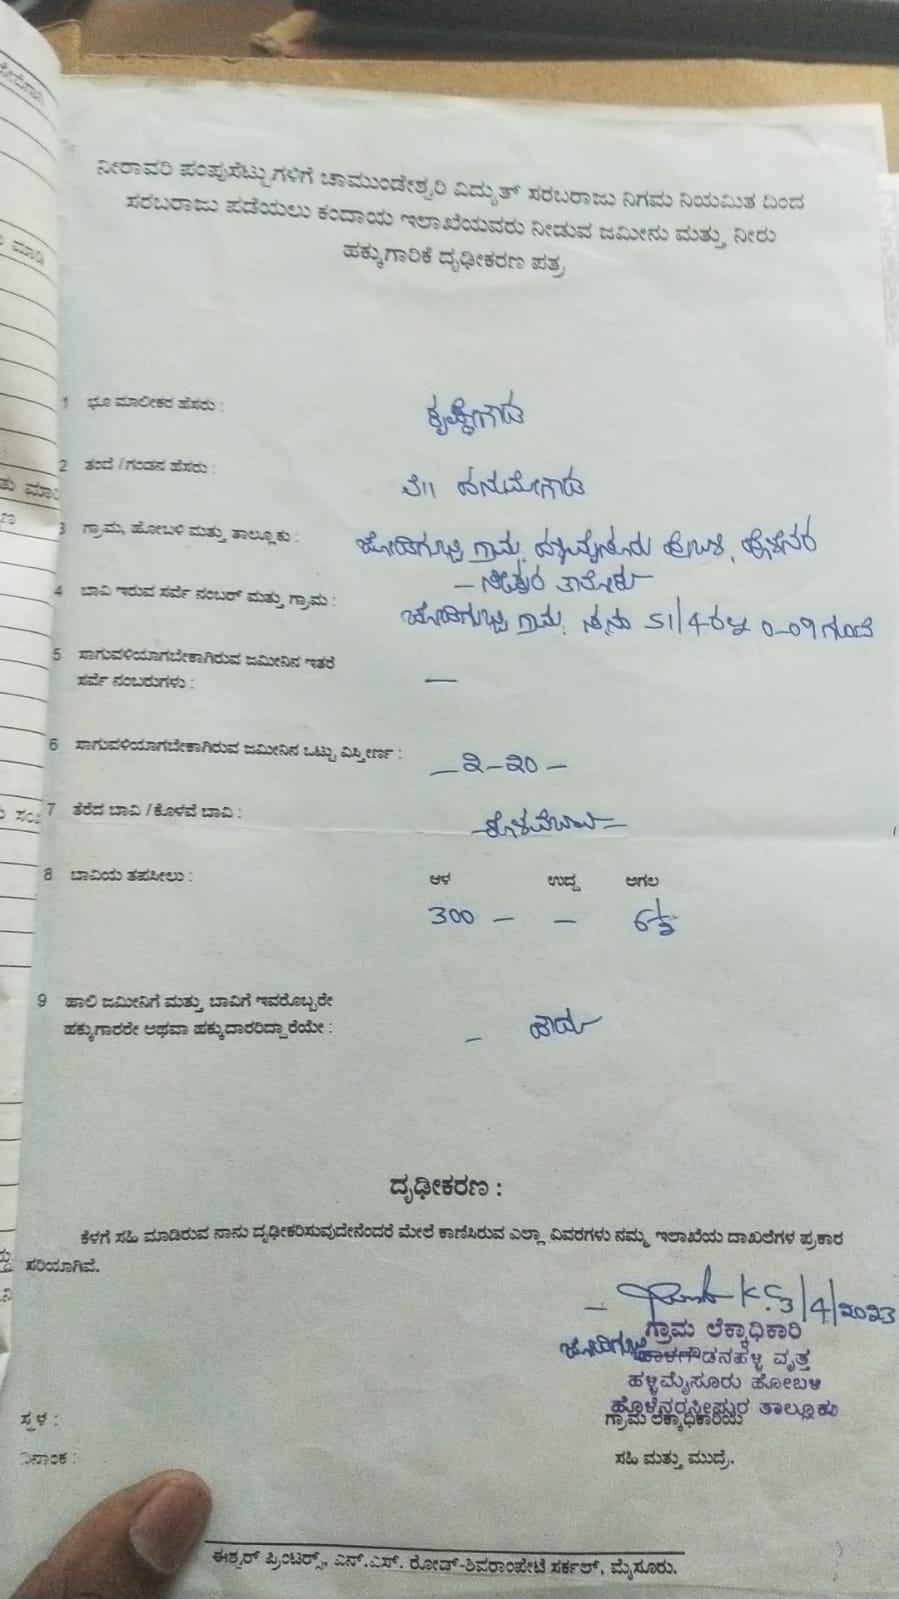 ನೀರಾವರಿ ಪಂಪುಸೆಟ್ಟುಗಳಿಗೆ ಚಾಮುಂಡೇಶ್ವರಿ ವಿದ್ಯುತ್ ಸರಬರಾಜು ನಿಗಮ ನಿಯಮಿತ ದಿಂದ
ಸರಬರಾಜು ಪಡೆಯಲು ಕಂದಾಯ ಇಲಾಖೆಯವರು ನೀಡುವ ಜಮೀನು ಮತ್ತು ನೀರು
ಹಕ್ಕುಗಾರಿಕೆ ದೃಢೀಕರಣ ಪತ್ರ
1 ಭೂ ಮಾಲೀಕರ ಹೆಸರು : ಕೃಷ್ಣೇಗೌಡ
2 ತಂದೆ / ಗಂಡನ ಹೆಸರು : ಹನುಮೇಗೌಡ
3 ಗ್ರಾಮ, ಹೋಬಳಿ ಮತ್ತು ತಾಲ್ಲೂಕು : ಜೋಡಿಗುಬ್ಬಿ ಗ್ರಾಮ, ಹಳ್ಳಿಮೈಸೂರು ಹೋಬಳಿ, ಹೊಳೆನರ
– ಸೀಪುರ ತಾಲ್ಲೋಕು
4 ಬಾವಿ ಇರುವ ಸರ್ವೆ ನಂಬರ್ ಮತ್ತು ಗ್ರಾಮ : ಜೋಡಿಗುಬ್ಬಿ ಗ್ರಾಮ. 51/4 ರಲ್ಲಿ 0-09 ಗುಂಟೆ
5 ಸಾಗುವಳಿಯಾಗಬೇಕಾಗಿರುವ ಜಮೀನಿನ ಇತರೆ
ಸರ್ವೆ ನಂಬರುಗಳು : —
6 ಸಾಗುವಳಿಯಾಗಬೇಕಾಗಿರುವ ಜಮೀನಿನ ಒಟ್ಟು ವಿಸ್ತೀರ್ಣ : – 2-20 –
7 ತೆರೆದ ಬಾವಿ / ಕೊಳವೆ ಬಾವಿ : – ಕೊಳವೆಬಾವಿ –
8 ಬಾವಿಯ ತಪಸೀಲು : ಆಳ ಉದ್ದ ಅಗಲ
300 – – 6½
9 ಹಾಲಿ ಜಮೀನಿಗೆ ಮತ್ತು ಬಾವಿಗೆ ಇವರೊಬ್ಬರೇ
ಹಕ್ಕುಗಾರರೇ ಅಥವಾ ಹಕ್ಕುದಾರರಿದ್ದಾರೆಯೇ : – ಹೌದು
ದೃಢೀಕರಣ :
ಕೆಳಗೆ ಸಹಿ ಮಾಡಿರುವ ನಾನು ದೃಢೀಕರಿಸುವುದೇನೆಂದರೆ ಮೇಲೆ ಕಾಣಿಸಿರುವ ಎಲ್ಲಾ ವಿವರಗಳು ನಮ್ಮ ಇಲಾಖೆಯ ದಾಖಲೆಗಳ ಪ್ರಕಾರ
ಸರಿಯಾಗಿವೆ.
3/4/2023
ಗ್ರಾಮ ಲೆಕ್ಕಾಧಿಕಾರಿ
ಜೋಡಿಗುಬ್ಬಿ ವೃತ್ತ
ಹಳ್ಳಿಮೈಸೂರು ಹೋಬಳಿ
ಹೊಳೆನರಸೀಪುರ ತಾಲ್ಲೂಕು
ಸ್ಥಳ : ಗ್ರಾಮ ಲೆಕ್ಕಾಧಿಕಾರಿಯ
ದಿನಾಂಕ : ಸಹಿ ಮತ್ತು ಮುದ್ರೆ.
ಈಶ್ವರ್ ಪ್ರಿಂಟರ್ಸ್, ಎನ್.ಎಸ್. ರೋಡ್-ಶಿವರಾಂಪೇಟೆ ಸರ್ಕಲ್, ಮೈಸೂರು.